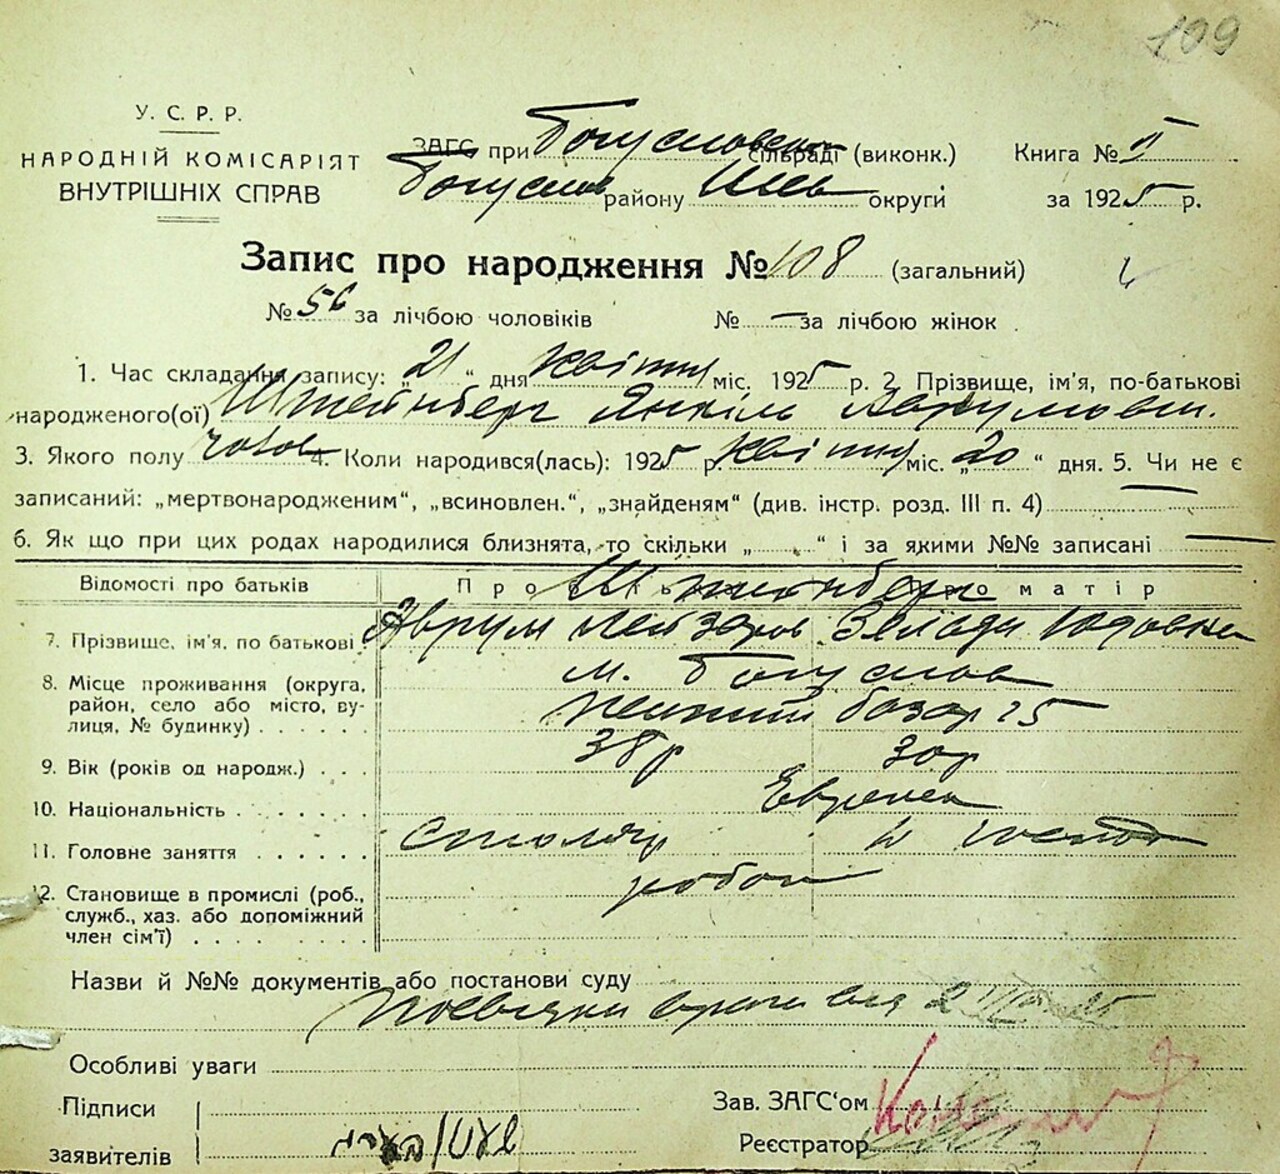 109
У. С. Р. Р.
НАРОДНІЙ КОМІСАРІЯТ
ВНУТРІШНІХ СПРАВ
ЗАГС при Богуславськ сільраді (виконк.)
Богуслав району округи
Книга № II
за 1925 р.
Запис про народження № 108 (загальний)
№ 56 за лічбою чоловіків № — за лічбою жінок
1. Час складання запису: „21“ дня квітня міс. 1925 р. 2. Прізвище, ім'я, по-батькові
народженого(ої) Штейнберг Янкіль Аврумович.
3. Якого полу чолов 4. Коли народився(лась): 1925 р. квітня міс. „20“ дня. 5. Чи не є
записаний: „мертвонародженим“, „всиновлен.“, „знайденям“ (див. інстр. розд. III п. 4) —
6. Як що при цих родах народилися близнята, то скільки „ “ і за якими №№ записані —
Відомості про батьків Про Про матір
Штейнберг
7. Прізвище, ім'я, по батькові Аврум Лейзеров Зельда Юдовна
8. Місце проживання (округа, район, село або місто, вулиця, № будинку) м. Богуслав
базар 25
9. Вік (років од народж.) 38р 30р
10. Національність Евреи
11. Головне заняття столяр
12. Становище в промислі (роб., служб., хаз. або допоміжний член сім'ї)
Назви й №№ документів або постанови суду
Особливі уваги
Підписи
заявителів
Зав. ЗАГС‘ом
Реєстратор